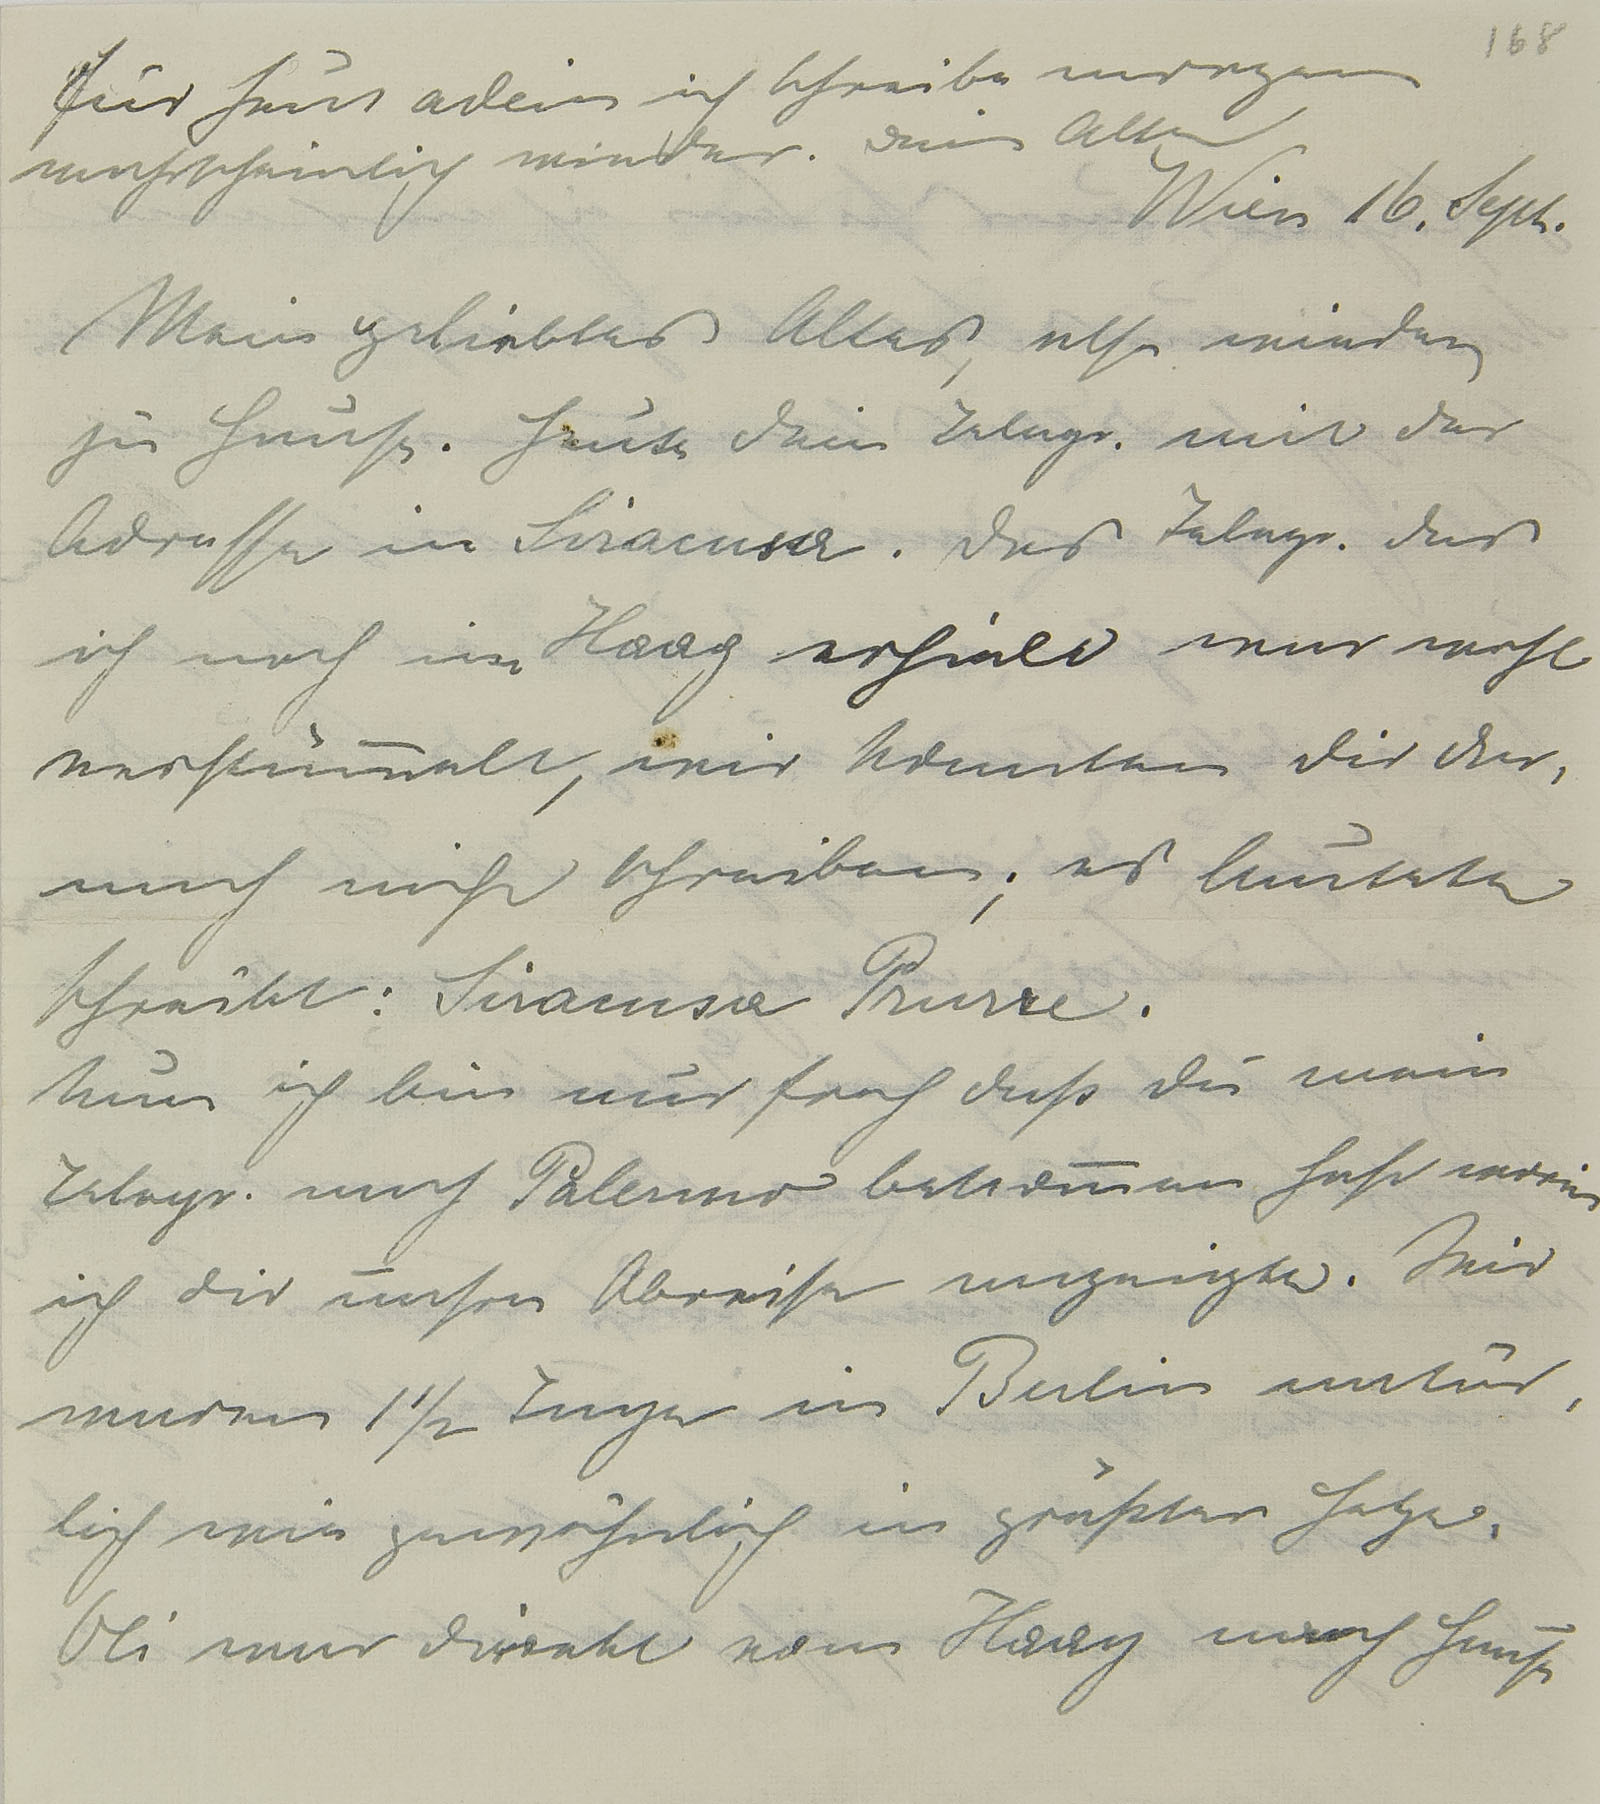 168
für heut adein ich schreibe morgen
wahrscheinlich wieder. Dein Alter
Wien 16. Sept.
Mein geliebtes Altes, also wieder
zu Hause. Heute dein Telegr. mit der
Adresse in Siracusa. Das Telegr. das
ich noch im Haag erhielt war wohl
verstümmelt, wir konnten dir dar,
nach nicht schreiben; es lautete
schreibt: Siracusa Prurre.
Nun ich bin nur froh daß du mein
Telegr. nach Palermo bekommen hast worin
ich dir unsere Abreise anzeigte. Wir
waren 1 1/2 Tage in Berlin natür,
lich wie gewöhnlich in größter Hetze.
Oli war direkt vom Haag nach Hause